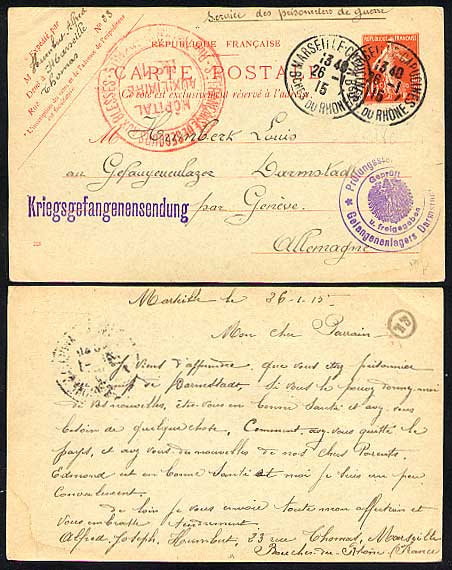 Service des prisonniers de guerre
RÉPUBLIQUE FRANÇAISE
CARTE POSTALE
Ce côté est exclusivement réservé à l'adresse.
Expédié par
M Humbert Alfred
à Marseille
Rue Thomas No 33
RÉPUBLIQUE FRANÇAISE
MARSEILLE
13 40
26 -1
15
BCHES DU RHONE
13 40
26 -1
15
DU RHONE
HÔPITAL
AUXILIAIRE
BLESSÉS
M Louis
au Gefangenenlager Darmstadt
Kriegsgefangenensendung par Genève.
Allemagne
Prüfungsst
Geprüft
u. freigegeben
Gefangenenlagers Darmstadt
Marseille le 26-1-15
Mon cher Parrain
Je viens d'apprendre, que vous êtes prisonnier
de Darmstadt. Si vous le pouvez donnez-moi
de vos nouvelles, êtes-vous en bonne santé et avez-vous
besoin de quelque chose. Comment avez-vous quitté le
pays, et avez-vous des nouvelles de nos chers Parents.
Edmond est en bonne santé et moi je suis un peu
convalescent.
de loin je vous envoie toute mon affection et
vous embrasse tendrement
Alfred Joseph, Humbert, 33 rue Thomas, Marseille
Bouches-du-Rhône (France)